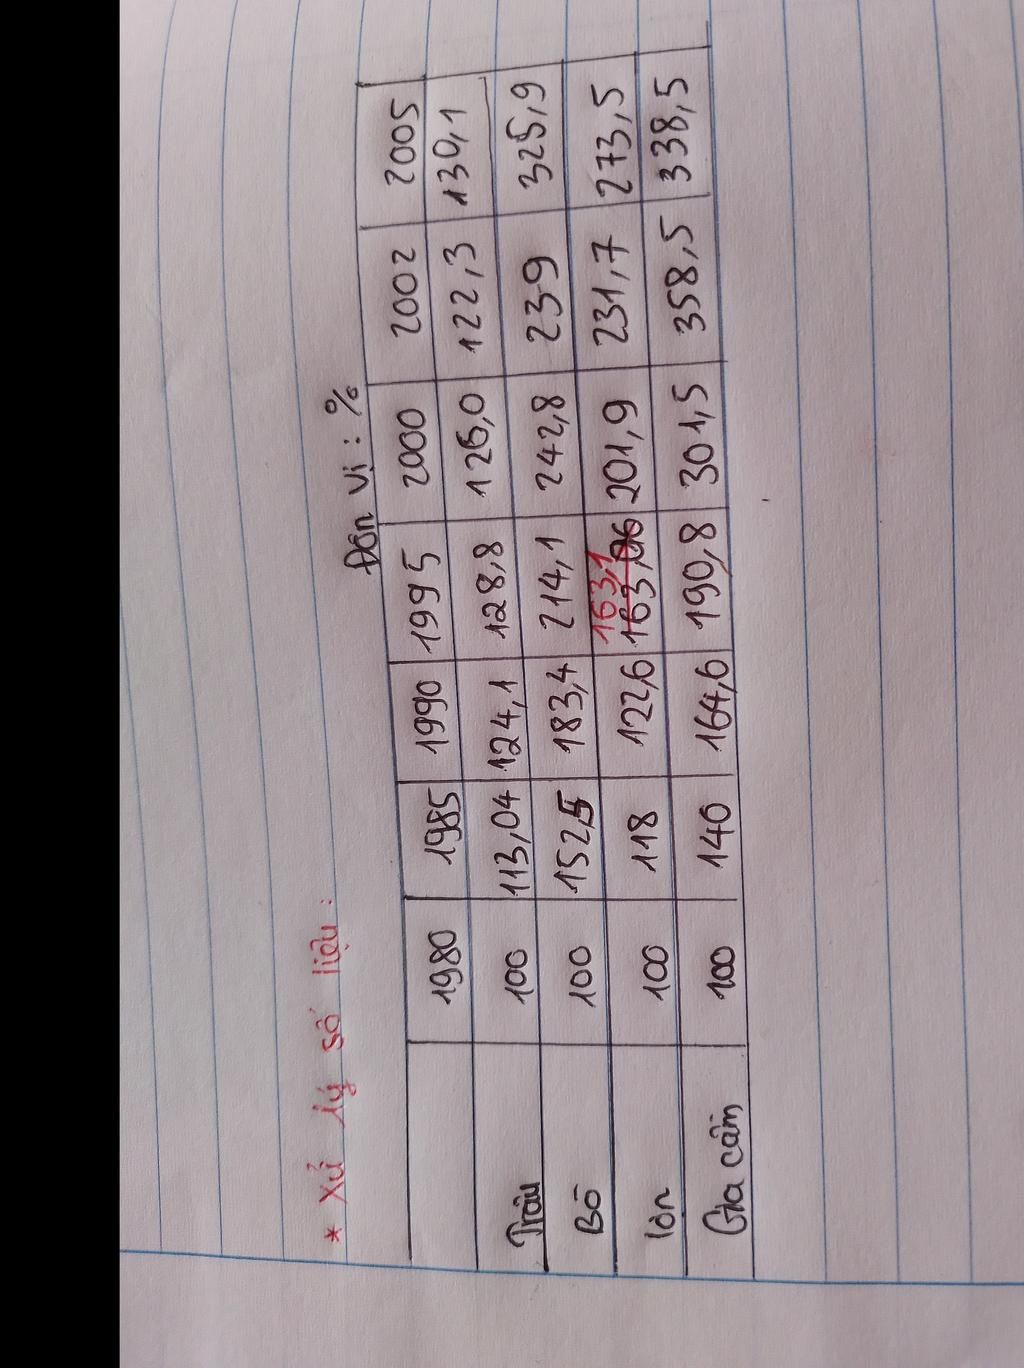 * Xử lý số liệu:
Đơn vị: %
1980 1985 1990 1995 2000 2002 2005
Trâu 100 113,04 124,1 128,8 126,0 122,3 130,1
Bò 100 152,5 183,4 214,1 242,8 239 325,9
163,1
lợn 100 118 122,6 163,06 201,9 231,7 273,5
Gia cầm 100 140 164,6 190,8 301,5 358,5 338,5